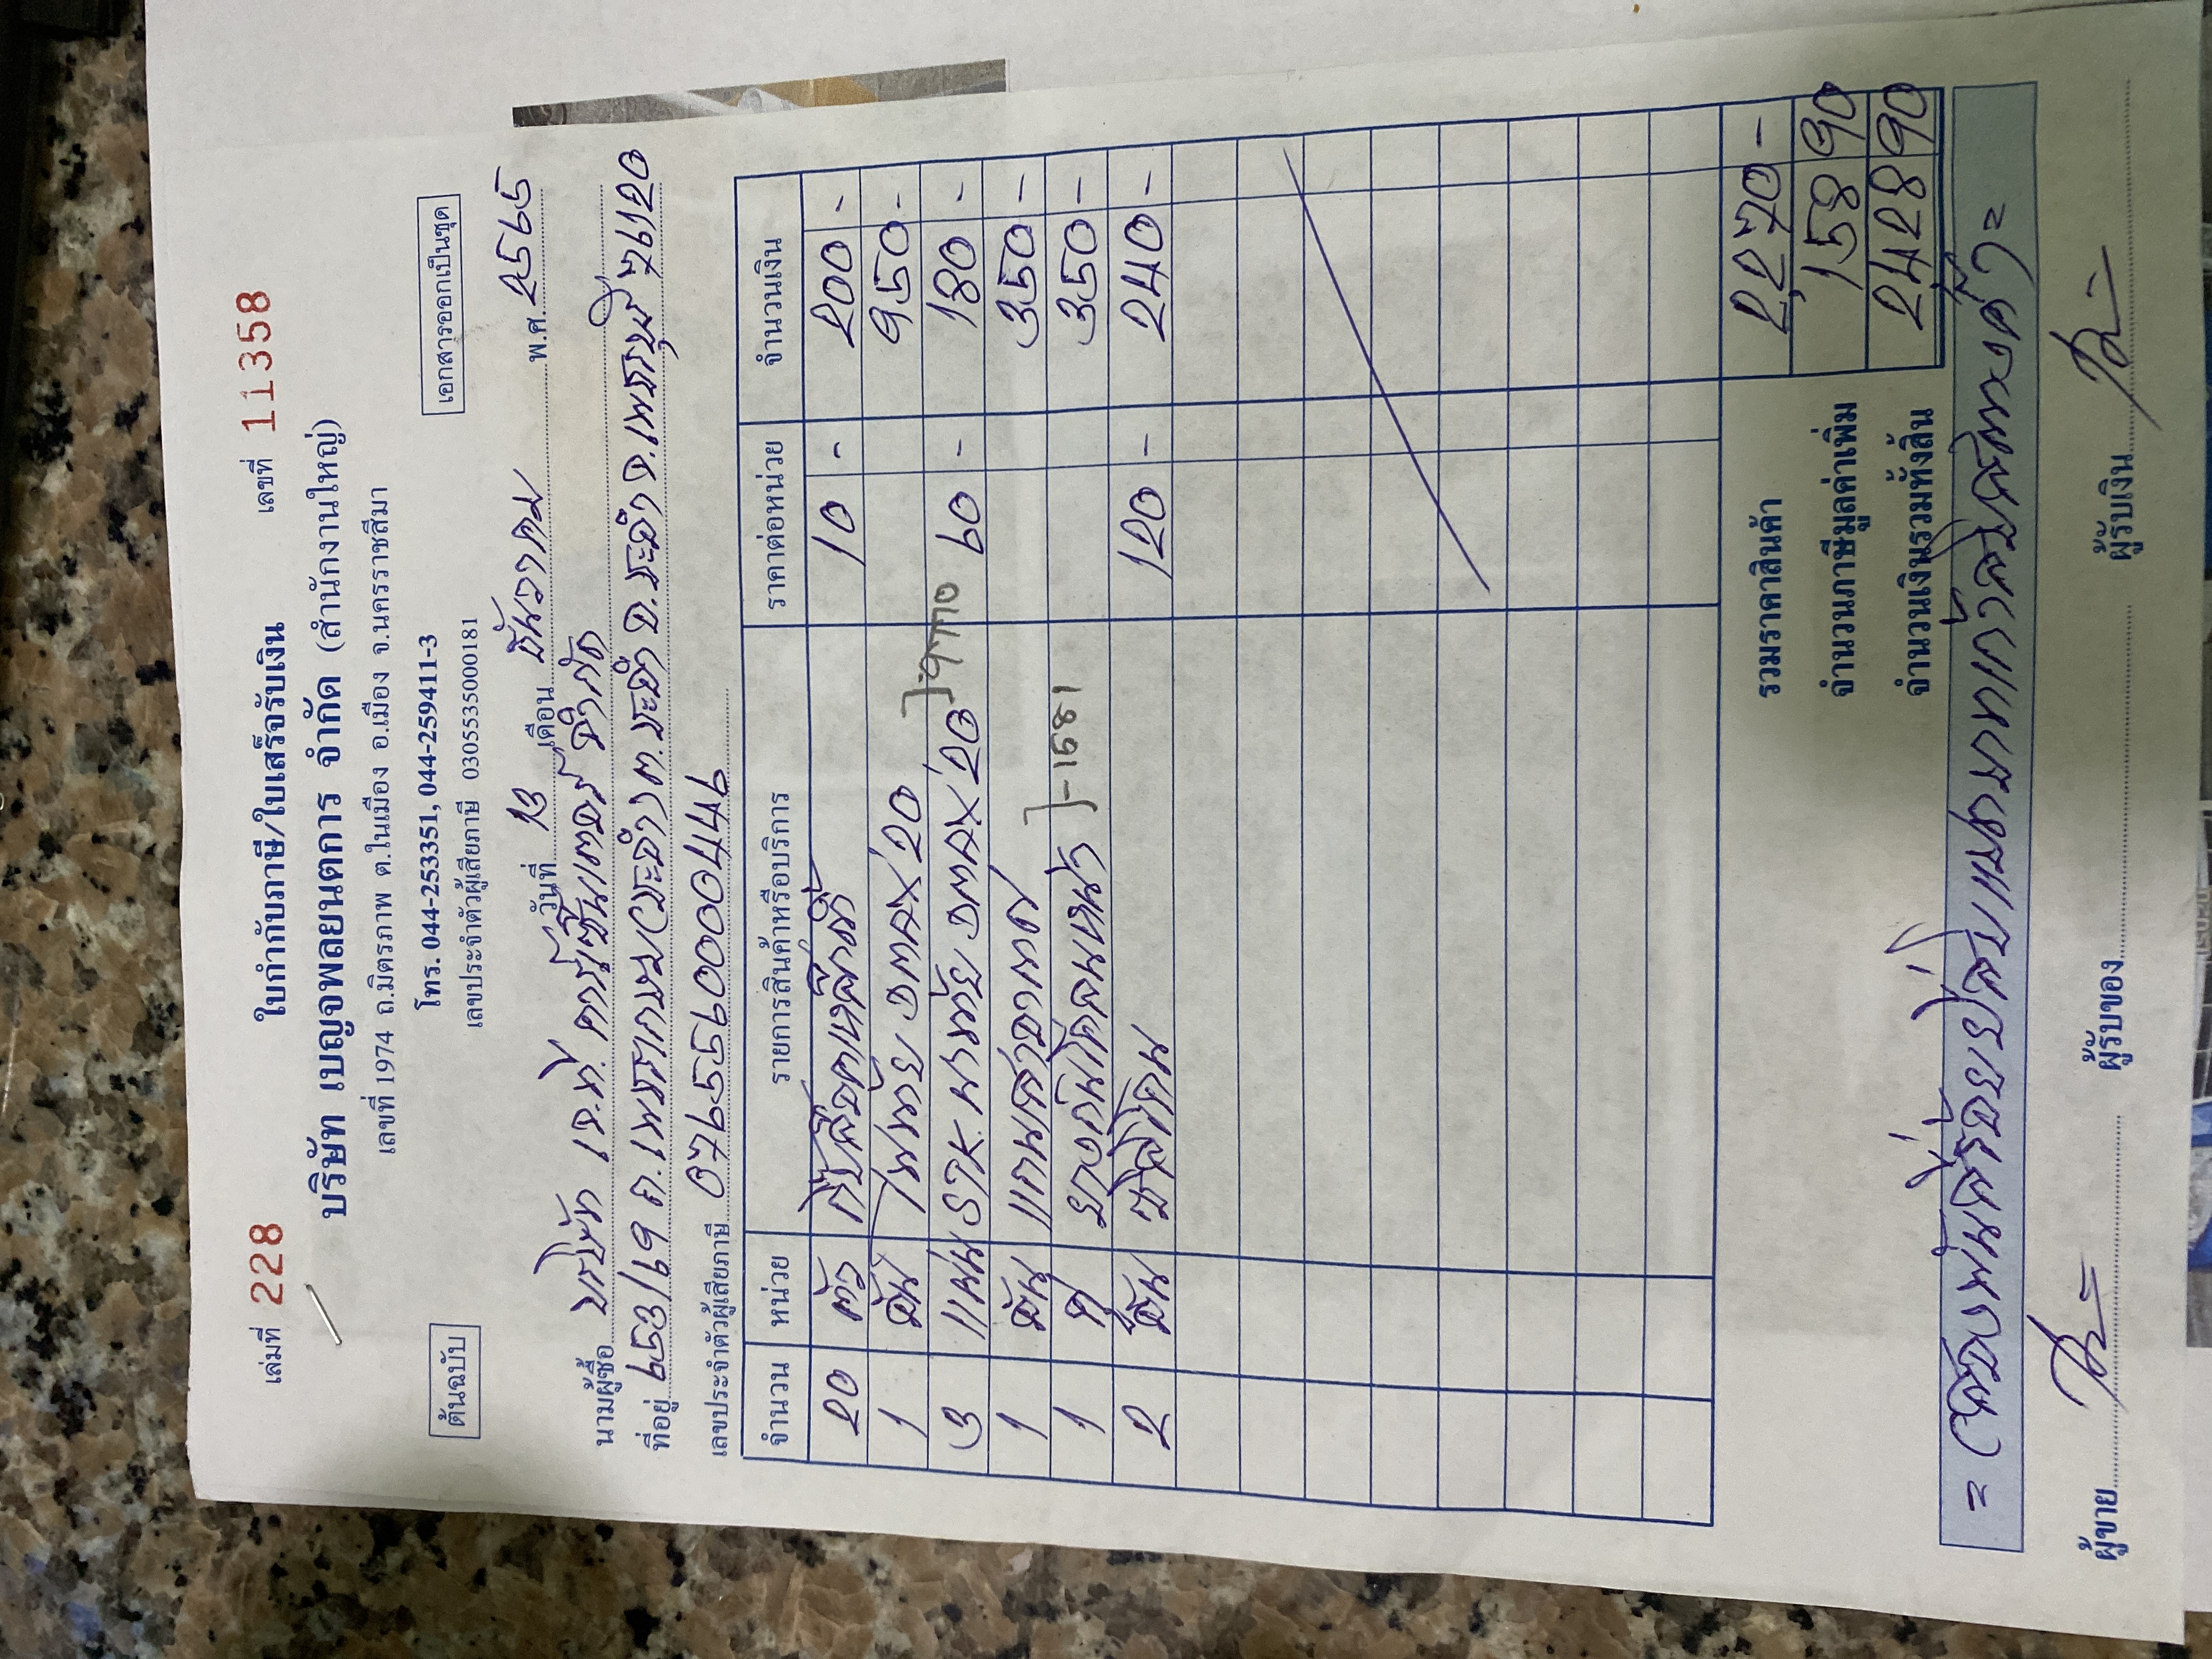 เล่มที่ 228 ใบกำกับภาษี/ใบเสร็จรับเงิน เลขที่ 11358
บริษัท เบญจพลยนตการ จำกัด (สำนักงานใหญ่)
เลขที่ 1974 ถ.มิตรภาพ ต.ในเมือง อ.เมือง จ.นครราชสีมา
ต้นฉบับ โทร. 044-253351, 044-259411-3 เอกสารออกเป็นชุด
เลขประจำตัวผู้เสียภาษี 0305535000181
วันที่ 13 เดือน ธันวาคม พ.ศ. 2565
นามผู้ซื้อ บริษัท เจ.ทุ
ที่อยู่ 953/169 ถ.เพชรเกษม จ.เพชรบุรี 76120
เลขประจำตัวผู้เสียภาษี
จำนวน หน่วย รายการสินค้าหรือบริการ ราคาต่อหน่วย จำนวนเงิน
20 ตัว 10 - 200 -
1 อัน DMAX'20 950 -
3 แผ่น STK DMAX'20 60 - 180 -
1 อัน 350 -
1 350 -
2 อัน 120 - 240 -
รวมราคาสินค้า 2,270 -
จำนวนภาษีมูลค่าเพิ่ม 158 90
จำนวนเงินรวมทั้งสิ้น 2428 90
= (สองพันสี่ร้อยยี่สิบแปดบาทเก้าสิบสตางค์) =
ผู้ขาย ผู้รับของ ผู้รับเงิน